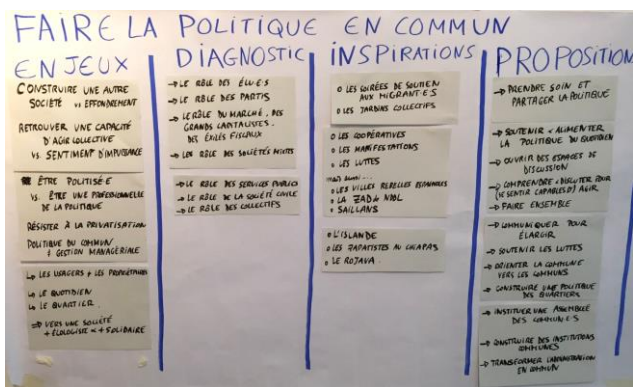 FAIRE LA POLITIQUE EN COMMUN
ENJEUX
CONSTRUIRE UNE AUTRE
SOCIÉTÉ vs EFFONDREMENT
RETROUVER UNE CAPACITÉ
D'AGIR COLLECTIVE
VS. SENTIMENT D'IMPUISSANCE
ÊTRE POLITISÉ·E
VS. ÊTRE UNE PROFESSIONNELLE
DE LA POLITIQUE
RÉSISTER À LA PRIVATISATION
POLITIQUE DU COMMUN
≠ GESTION MANAGÉRIALE
↳ LES USAGERS ≠ LES PROPRIÉTAIRES
↳ LE QUOTIDIEN
↳ LE QUARTIER
⇒ VERS UNE SOCIÉTÉ
+ ÉCOLOGISTE + SOLIDAIRE
DIAGNOSTIC
→ LE RÔLE DES ÉLU·E·S
→ LE RÔLE DES PARTIS
→ LE RÔLE DU MARCHÉ, DES
GRANDS CAPITALISTES,
DES EXILÉS FISCAUX
→ LES RÔLE DES SOCIÉTÉS MIXTES
→ LE RÔLE DES SERVICES PUBLICS
→ LE RÔLE DE LA SOCIÉTÉ CIVILE
→ LE RÔLE DES COLLECTIFS
INSPIRATIONS
o LES SOIRÉES DE SOUTIEN
AUX MIGRANT·E·S
o LES JARDINS COLLECTIFS
o LES COOPÉRATIVES
o LES MANIFESTATIONS
o LES LUTTES
mais aussi...
o LES VILLES REBELLES ESPAGNOLES
o LA ZAD de NDDL
o SAILLANS
o L'ISLANDE
o LES ZAPATISTES AU CHIAPAS
o LE ROJAVA
PROPOSITION
→ PRENDRE SOIN ET
PARTAGER LA POLITIQUE
→ SOUTENIR + ALIMENTER
LA POLITIQUE DU QUOTIDIEN
→ OUVRIR DES ESPACES DE
DISCUSSION
→ COMPRENDRE + DISCUTER POUR
(SE SENTIR CAPABLES D') AGIR
→ FAIRE ENSEMBLE
→ COMMUNIQUER POUR
ÉLARGIR
→ SOUTENIR LES LUTTES
→ ORIENTER LA COMMUNE
VERS LES COMMUNS
→ CONSTRUIRE UNE POLITIQUE
DES QUARTIERS
→ INSTITUER UNE ASSEMBLÉE
DES COMMUN·E·S
→ CONSTRUIRE DES INSTITUTIONS
COMMUNES
→ TRANSFORMER L'ADMINISTRATION
EN COMMUN